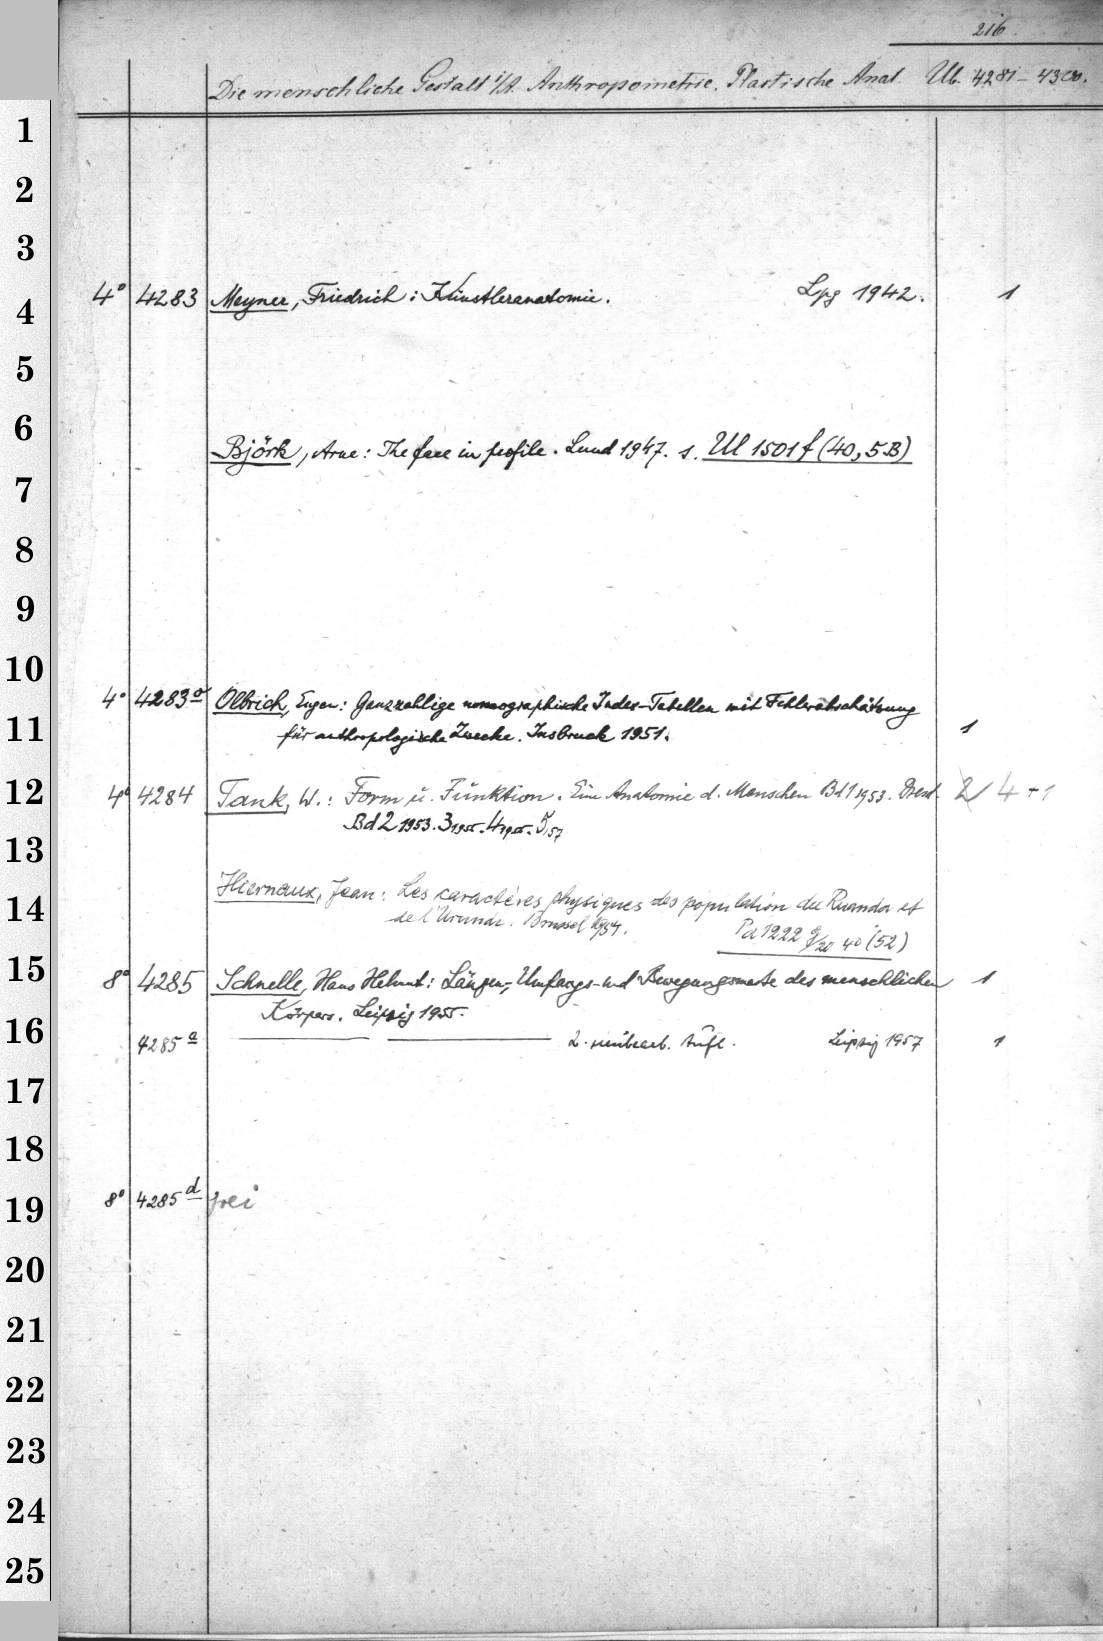 216.
Die menschliche Gestalt i/A. Anthropometrie. Plastische Anat. Ul. 4281-4300.
1
2
3
4° 4283 Meyner, Friedrich: Künstleranatomie. Lpg 1942. 1
4
5
6
Björk, Arne: The face in profile. Lund 1947. s. Ul 1501 f (40, 5.B)
7
8
9
10
4° 4283a Olbrich, Eugen: Ganzzahlige nomographische Index-Tabellen mit Fehlerabschätzung
11
für anthropologische Zwecke. Insbruck 1951. 1
12
4° 4284 Tank, W.: Form u. Funktion. Eine Anatomie d. Menschen Bd 1 1953. Dresd. 2 4 + 1
Bd 2 1953. 3 1955. 4 1955. 5/57
13
14
Hiernaux, Jean: Les caractères physiques des population du Ruanda et
de l'Urundi. Brüssel 1954.
Pa 1222 g/20 4° (52)
15
8° 4285 Schnelle, Hans Helmut: Längen-, Umfangs- und Bewegungsmaße des menschlichen 1
Körpers. Leipzig 1955.
16
4285a 2. neubearb. Aufl. Leipzig 1957 1
17
18
8° 4285d frei
19
20
21
22
23
24
25